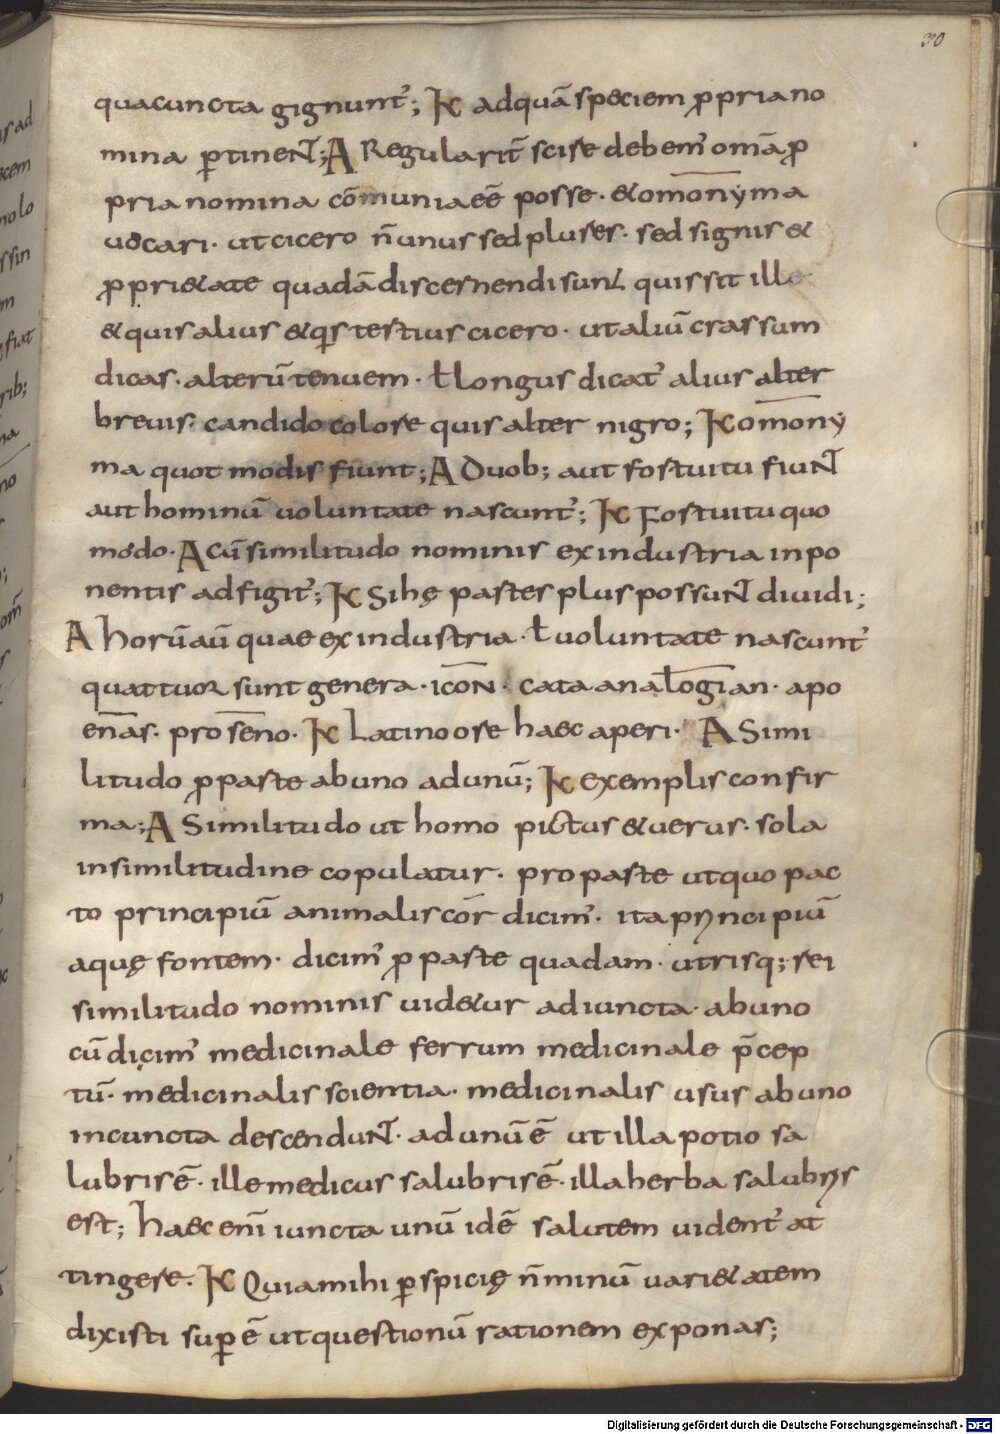 30
quacuncta gignunt᷒; K adquā speciem ꝓpria no
mina ꝑtineNT; A Regularit̄ scire debem᷒ om̄a ꝓ
pria nomina cōmunia eē posse · &omōnyma
uocari · ut cicero n̄ unus sed plures · sed signis &
ꝓpri&ate quadā discernendi sunt quis sit ille
& quis alius & qis tertius cicero · ut aliū crassum
dicas · alterū tenuem · ł longus dicat᷒ alius alter
breuis · candido colore quis alter nigro; K omōny
ma quot modis fiunt; A Duob; aut fortuitu fiuNT
aut hominū uoluntate nascunt᷒; K Fortuitu quo
modo · A Cū similitudo nominis ex industria inpo
nentis adfigit᷒; K Si hę partes plus possuNT diuidi;
A horū aū quae ex industria · ł uoluntate nascunt᷒
quattuor sunt genera · icōN · cata analogian · apo
enās · pros enō · K Latino ore haec aperi · A Simi
litudo ꝓ parte ab uno ad unū; K exemplis confir
ma; A Similitudo ut homo pictus & uerus · sola
in similitudine copulatur · pro parte ut quo pac
to principiū animalis cor dicim᷒ · ita principiū
aquę fontem · dicim᷒ ꝓ parte quadam · utrisq; rei
similitudo nominis uid&ur adiuncta · ab uno
cū dicim᷒ medicinale ferrum medicinale p̄cep
tū · medicinalis scientia · medicinalis usus ab uno
in cuncta descenduNT · ad unū ē ut illa potio sa
lubris ē · ille medicus salubris ē · illa herba salubris
est; haec eni iuncta unū idē salutem uident᷒ at
tingere · K Quia mihi ꝑspicię n̄minū uari&atem
dixisti suꝑ ē ut questionū rationem exponas;
Digitalisierung gefördert durch die Deutsche Forschungsgemeinschaft - DFG